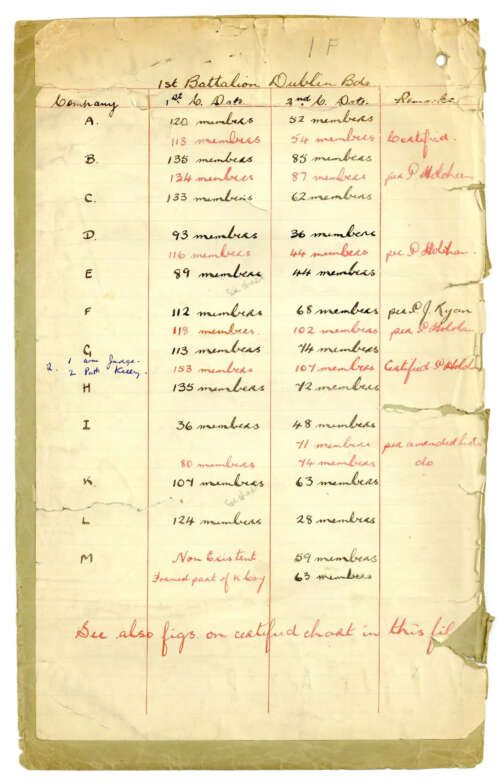 1 F
1st Battalion Dublin Bde
Company 1st C. Date 2nd C. Date. Remarks
A. 120 members 52 members
113 members 54 members Certified.
B. 135 members 85 members
134 members 87 members per P Holohan
C. 133 members 62 members
D. 93 members 36 members
116 members 44 members per P Holohan.
E 89 members 44 members
F 112 members 68 members per P. J. Ryan
118 members. 102 members per P Holohan
G 113 members 74 members
2. 1 Judge. 153 members 107 members Certified P Holohan
2 Patk Kelly.
H 135 members 72 members
I 36 members 48 members
71 members per amended list
80 members 74 members do
K 107 members 63 members
L 124 members 28 members
M Non Existent 59 members
Formed part of K Coy 63 members
See also figs on certified chart in this fil